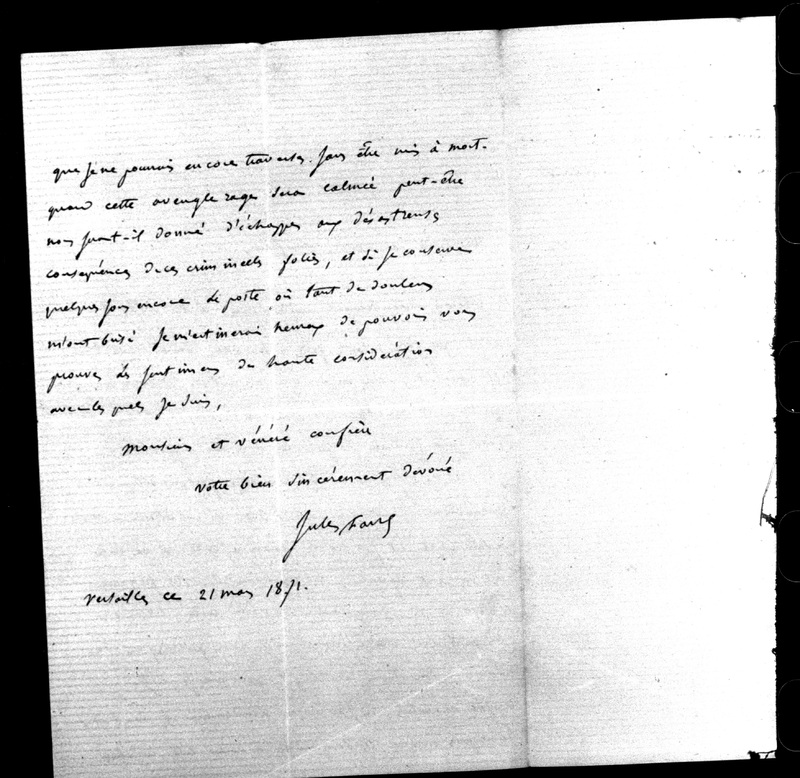 que je ne pourrais encore traverser sans être mis à mort.
quand cette aveugle rage sera calmée peut-être
nous sera-t-il donné d'échapper aux désastreuses
conséquences de ces criminelles folies, et si je conserve
quelques jours encore le poste où tant de douleurs
m'ont brisé je m'estimerai heureux de pouvoir vous
prouver les sentimens de haute considération
avec lesquels je suis,
Monsieur et vénéré confrère
votre bien sincèrement dévoué
Jules Favre
Versailles ce 21 mars 1871.